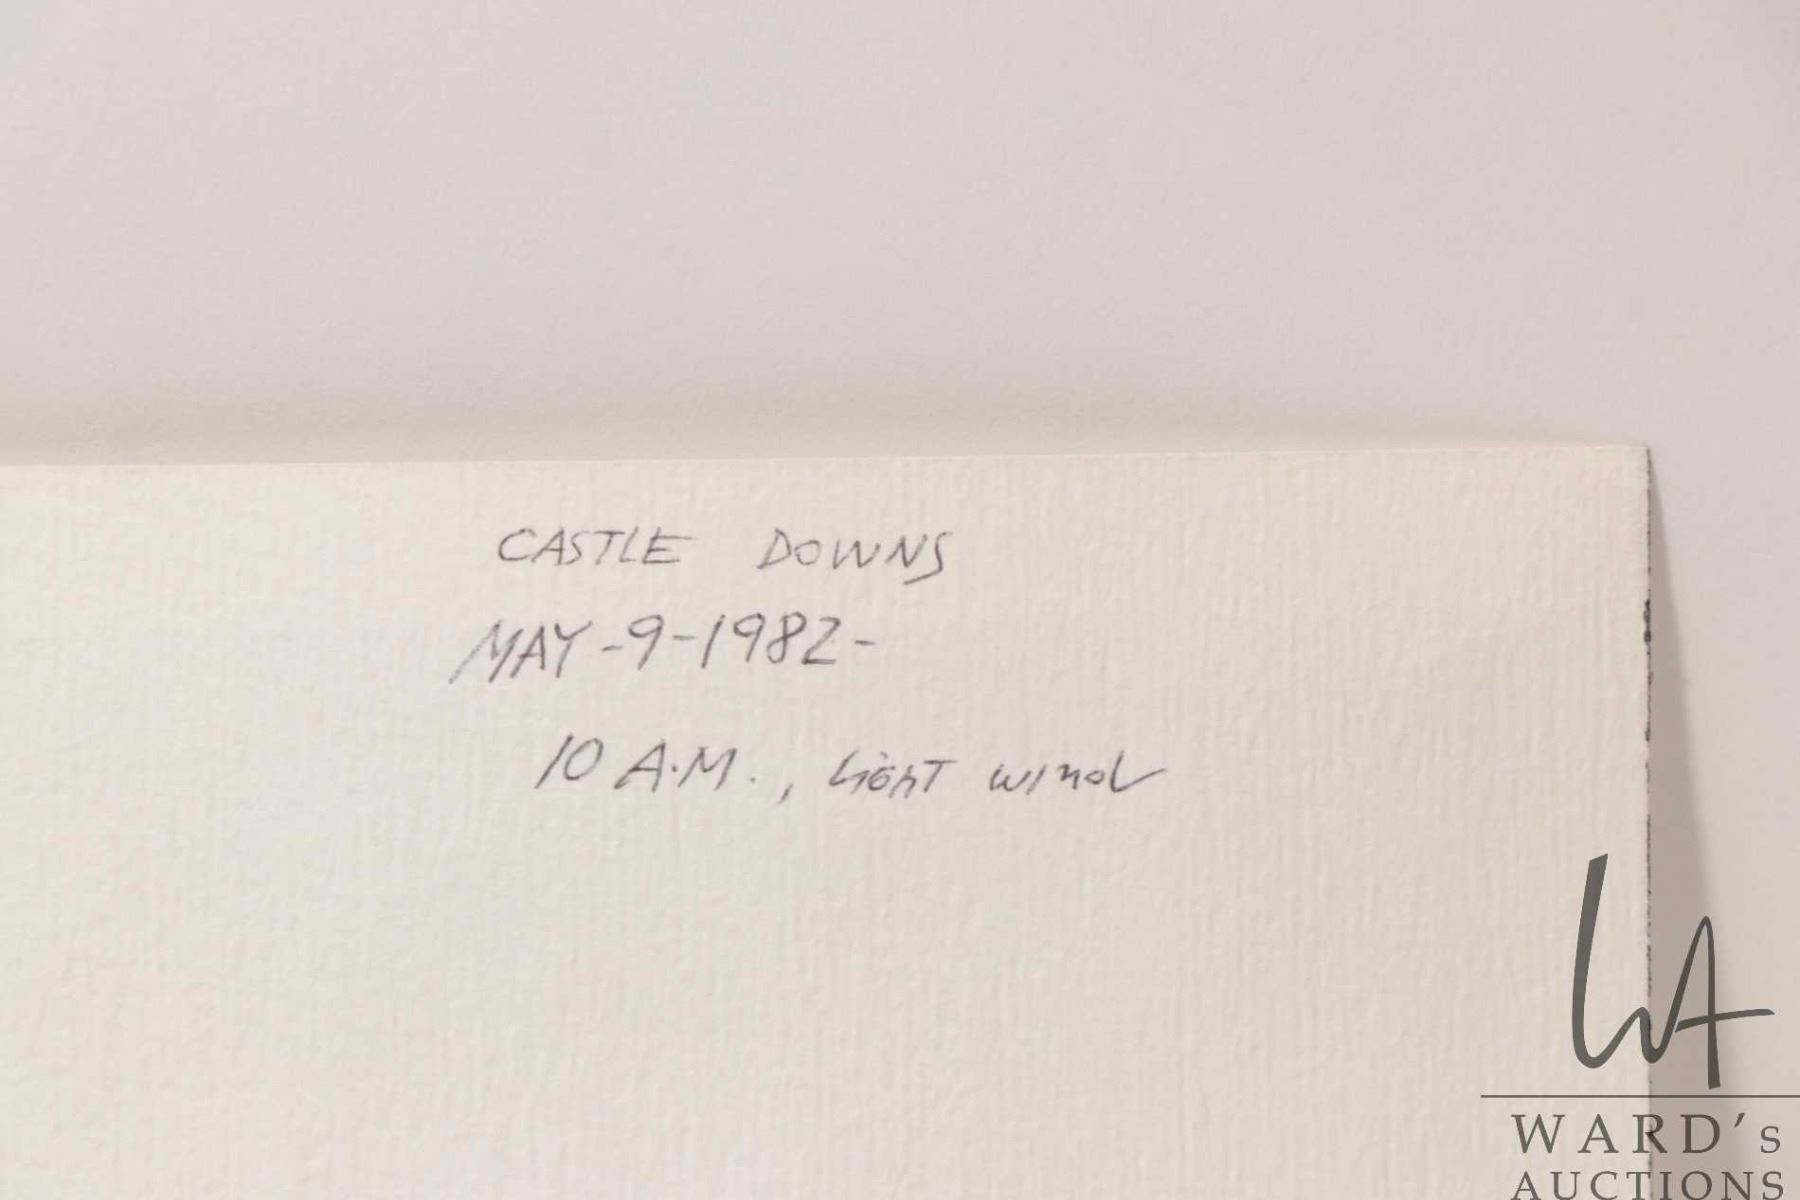 CASTLE DOWNS
MAY-9-1982-
10 A.M., Light wind
WA
WARD's
AUCTIONS